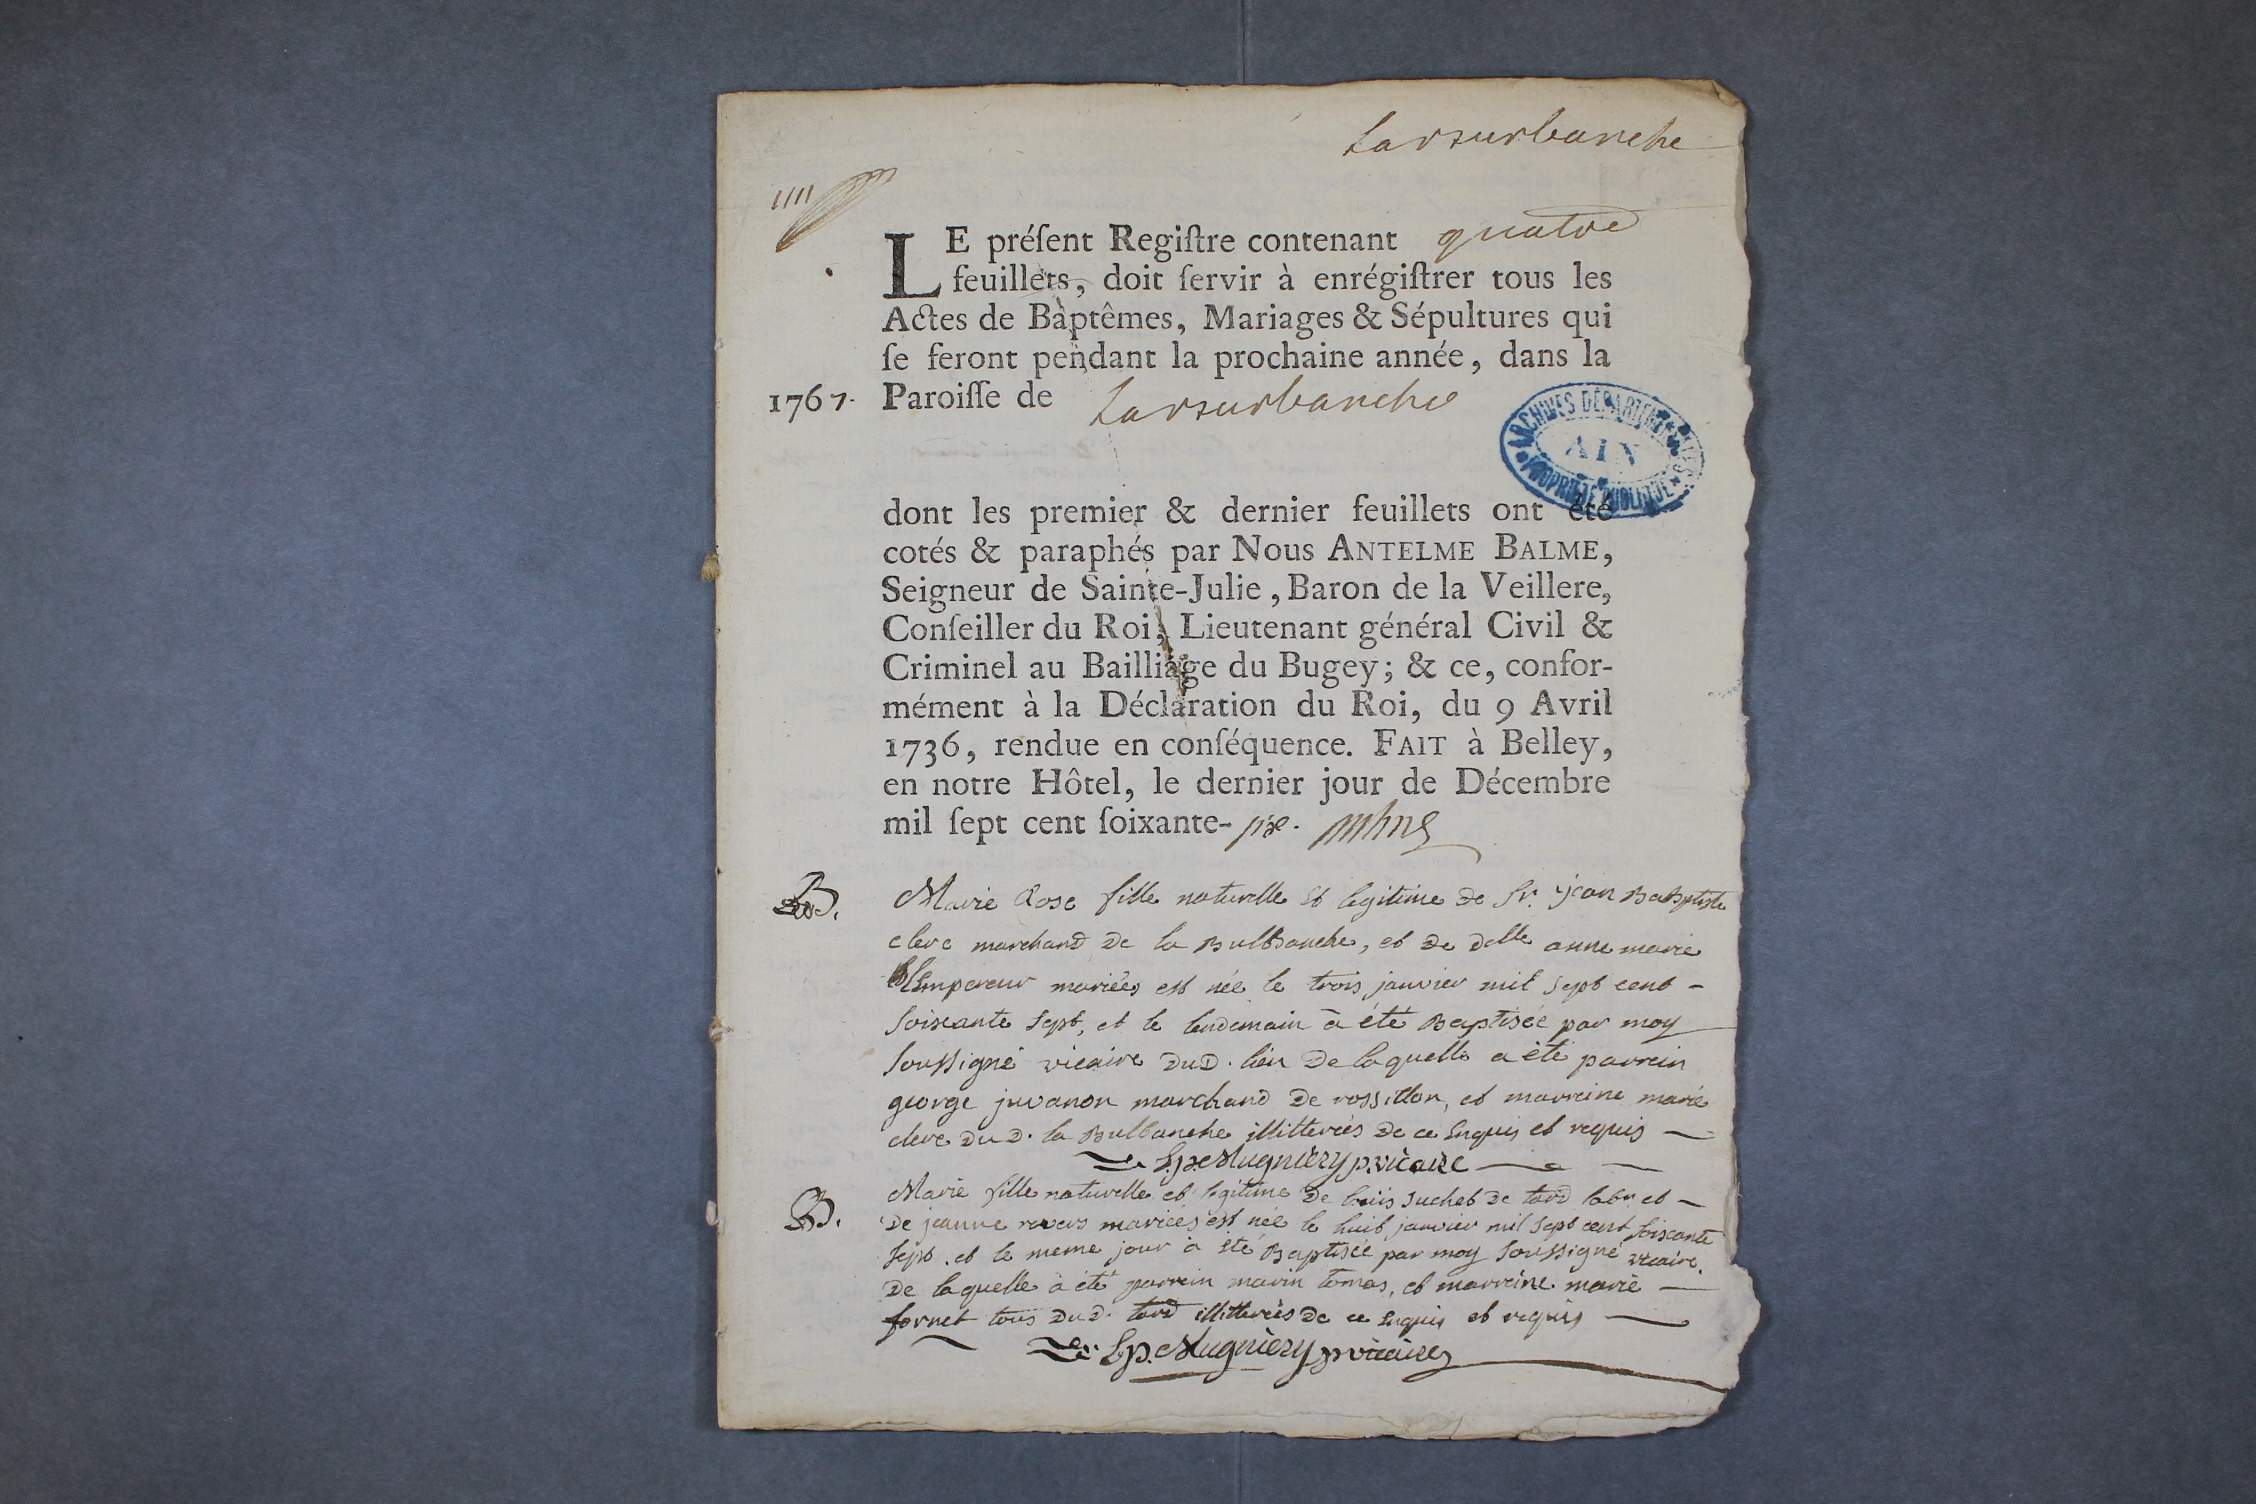 Larsurbanche
1111
LE préſent Regiſtre contenant quatre
feuillets, doit ſervir à enrégiſtrer tous les
Actes de Baptêmes, Mariages & Sépultures qui
ſe feront pendant la prochaine année, dans la
1767. Paroiſſe de Larsurbanche
ARCHIVES DÉPARTEMENTALES
AIN
PROPRIÉTÉ PUBLIQUE
dont les premier & dernier feuillets ont été
cotés & paraphés par Nous ANTELME BALME,
Seigneur de Sainte-Julie, Baron de la Veillere,
Conſeiller du Roi, Lieutenant général Civil &
Criminel au Bailliage du Bugey; & ce, confor-
mément à la Déclaration du Roi, du 9 Avril
1736, rendue en conſéquence. FAIT à Belley,
en notre Hôtel, le dernier jour de Décembre
mil ſept cent ſoixante- six.
B. Marie Rose fille naturelle et legitime de Sr. jean Babptiste
clerc marchand de la Bulbanche, et de delle anne marie
Lempereur mariées est née le trois janvier mil sept cent -
soixante sept, et le lendemain à été Baptisée par moy
soussigné vicaire dud. lieu de laquelle a été parrein
george juvanon marchand de rossillon, et marreine marie
clerc dud. la Bulbanche illitterés de ce enquis et requis
p. vicaire
B. Marie fille naturelle et legitime de louis suchet de tard labr. et -
de jeanne mariées est née le huit janvier mil sept cent soixante
sept. et le meme jour à été Baptisée par moy soussigné vicaire.
de laquelle à été parrein marin tomas, et marreine marie
fornet tous dud. tard illitterés de ce enquis et requis
p. vicaire